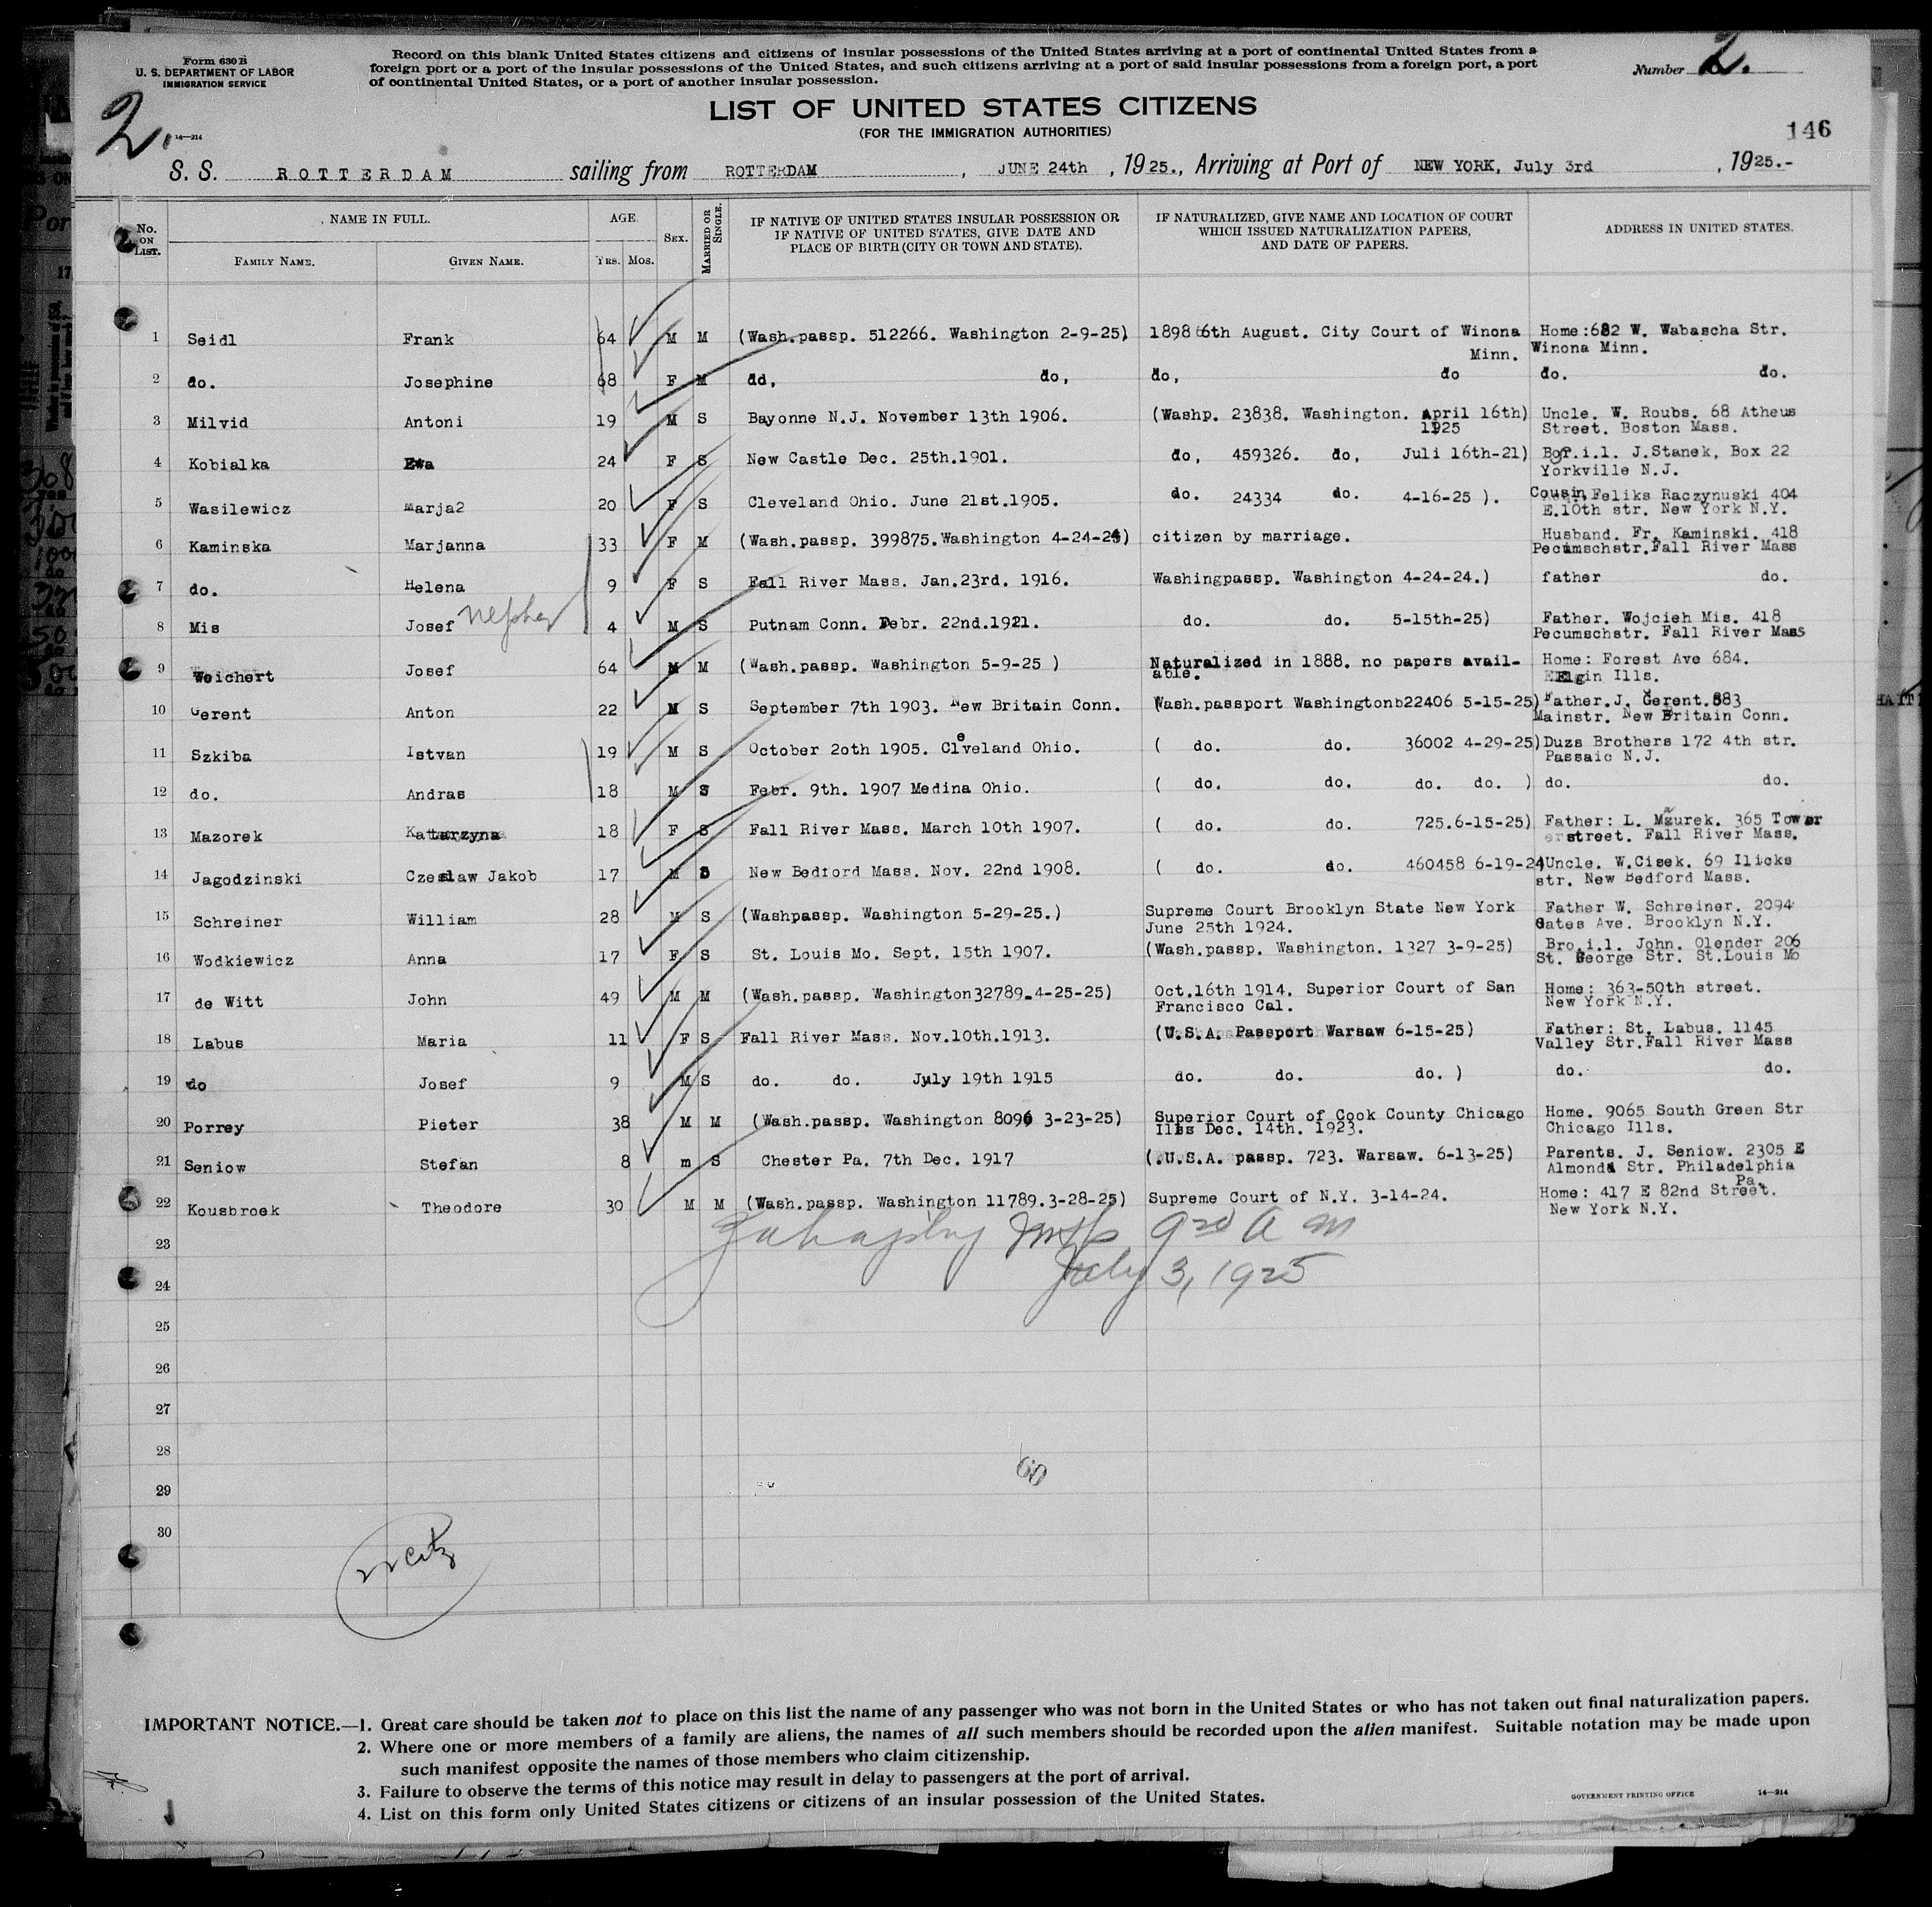 Form 630 B
U. S. DEPARTMENT OF LABOR
IMMIGRATION SERVICE
Record on this blank United States citizens and citizens of insular possessions of the United States arriving at a port of continental United States from a
foreign port or a port of the insular possessions of the United States, and such citizens arriving at a port of said insular possessions from a foreign port, a port
of continental United States, or a port of another insular possession.
Number 2.
2. 14—214
LIST OF UNITED STATES CITIZENS
(FOR THE IMMIGRATION AUTHORITIES)
146
S. S. ROTTERDAM sailing from ROTTERDAM, JUNE 24th, 1925., Arriving at Port of NEW YORK, July 3rd, 1925.-
No. ON LIST.
NAME IN FULL.
FAMILY NAME. GIVEN NAME.
AGE.
YRS. MOS.
SEX.
MARRIED OR SINGLE.
IF NATIVE OF UNITED STATES INSULAR POSSESSION OR
IF NATIVE OF UNITED STATES, GIVE DATE AND
PLACE OF BIRTH (CITY OR TOWN AND STATE).
IF NATURALIZED, GIVE NAME AND LOCATION OF COURT
WHICH ISSUED NATURALIZATION PAPERS,
AND DATE OF PAPERS.
ADDRESS IN UNITED STATES.
1 Seidl Frank 64 M M (Wash.passp. 512266. Washington 2-9-25) 1898 6th August. City Court of Winona Home:682 W. Wabascha Str.
Minn. Winona Minn.
2 do. Josephine 68 F M do, do, do, do do. do.
3 Milvid Antoni 19 M S Bayonne N.J. November 13th 1906. (Washp. 23838. Washington. April 16th) Uncle. W. Roubs. 68 Atheus
1925 Street. Boston Mass.
4 Kobialka Ewa 24 F S New Castle Dec. 25th.1901. do, 459326. do, Juli 16th-21) J.Stanek, Box 22
Yorkville N.J.
5 Wasilewicz Marja2 20 F S Cleveland Ohio. June 21st.1905. do. 24334 do. 4-16-25 ). Cousin, Feliks Raczynuski 404
E.10th str. New York N.Y.
6 Kaminska Marjanna 33 F M (Wash.passp. 399875.Washington 4-24-24) citizen by marriage. Husband. Fr. Kaminski. 418
Pecumschstr.Fall River Mass
7 do. Helena 9 F S Fall River Mass. Jan.23rd. 1916. Washingpassp. Washington 4-24-24.) father do.
nephew
8 Mis Josef 4 M S Putnam Conn. Febr. 22nd.1921. do. do. 5-15th-25) Father. Wojcieh Mis. 418
Pecumschstr. Fall River Mass
9 Weichert Josef 64 M M (Wash.passp. Washington 5-9-25 ) Naturalized in 1888. no papers avail- Home: Forest Ave 684.
able. Elgin Ills.
10 Gerent Anton 22 M S September 7th 1903. New Britain Conn. Wash.passport Washington 22406 5-15-25) Father.J. Gerent.883
Mainstr. New Britain Conn.
11 Szkiba Istvan 19 M S October 20th 1905. Cleveland Ohio. ( do. do. 36002 4-29-25) Duzs Brothers 172 4th str.
Passaic N.J.
12 do. Andras 18 M S Febr. 9th. 1907 Medina Ohio. ( do. do. do. do. ) do. do.
13 Mazorek Katarzyna 18 F S Fall River Mass. March 10th 1907. ( do. do. 725.6-15-25) Father: L. Mazurek. 365 Tower
street. Fall River Mass.
14 Jagodzinski Czeslaw Jakob 17 M S New Bedford Mass. Nov. 22nd 1908. ( do. do. 460458 6-19-24) Uncle. W.Cisek. 69 Ilicks
str. New Bedford Mass.
15 Schreiner William 28 M S (Washpassp. Washington 5-29-25.) Supreme Court Brooklyn State New York Father W. Schreiner. 2094
June 25th 1924. Gates Ave. Brooklyn N.Y.
16 Wodkiewicz Anna 17 F S St. Louis Mo. Sept. 15th 1907. (Wash.passp. Washington. 1327 3-9-25) Bro.i.l. John. Olender 206
St. George Str. St.Louis Mo
17 de Witt John 49 M M (Wash.passp. Washington32789.4-25-25) Oct.16th 1914. Superior Court of San Home: 363-50th street.
Francisco Cal. New York N.Y.
18 Labus Maria 11 F S Fall River Mass. Nov.10th.1913. (U.S.A. Passport Warsaw 6-15-25) Father: St. Labus. 1145
Valley Str.Fall River Mass
19 do Josef 9 M S do. do. July 19th 1915 do. do. do. ) do. do.
20 Porrey Pieter 38 M M (Wash.passp. Washington 8096 3-23-25) Superior Court of Cook County Chicago Home. 9065 South Green Str
Ills Dec. 14th. 1923. Chicago Ills.
21 Seniow Stefan 8 m S Chester Pa. 7th Dec. 1917 (.U.S.A. passp. 723. Warsaw. 6-13-25) Parents. J. Seniow. 2305 E
Almond Str. Philadelphia
Pa.
22 Kousbroek Theodore 30 M M (Wash.passp. Washington 11789.3-28-25) Supreme Court of N.Y. 3-14-24. Home: 417 E 82nd Street.
New York N.Y.
23
9 20 A M
24
July 3, 1925
25
26
27
28
60
29
30
22 Citz
IMPORTANT NOTICE.—1. Great care should be taken not to place on this list the name of any passenger who was not born in the United States or who has not taken out final naturalization papers.
2. Where one or more members of a family are aliens, the names of all such members should be recorded upon the alien manifest. Suitable notation may be made upon
such manifest opposite the names of those members who claim citizenship.
3. Failure to observe the terms of this notice may result in delay to passengers at the port of arrival.
4. List on this form only United States citizens or citizens of an insular possession of the United States.
GOVERNMENT PRINTING OFFICE 14—214